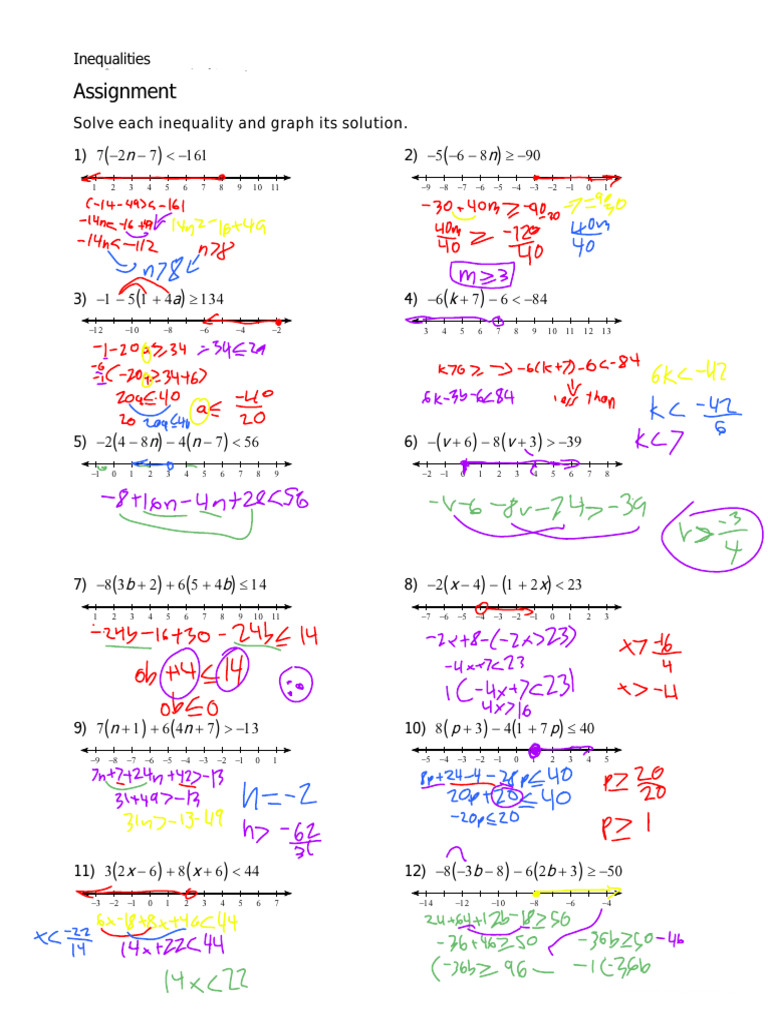 Inequalities
Assignment
Solve each inequality and graph its solution.
1) 7(−2n − 7) < −161
1 2 3 4 5 6 7 8 9 10 11
-14n<-112
n>8
n>8
2) −5(−6 − 8n) ≥ −90
−9 −8 −7 −6 −5 −4 −3 −2 −1 0 1
-30+40m≥-90
40m/40 ≥ -120/40
40m/40
m≥3
3) −1 − 5(1 + 4a) ≥ 134
−12 −10 −8 −6 −4 −2
-1-20a≥34
20a≤-40
a≤ -40/20
20 20a≤40
4) −6(k + 7) − 6 < −84
3 4 5 6 7 8 9 10 11 12 13
-6(k+7)-6<-84
less than
6k<-42
k< -42/6
k<7
5) −2(4 − 8n) − 4(n − 7) < 56
−1 0 1 2 3 4 5 6 7 8 9
-8+16n-4n+28<56
6) −(v + 6) − 8(v + 3) > −39
−2 −1 0 1 2 3 4 5 6 7 8
-v-6-8v-24>-39
v> -3/4
7) −8(3b + 2) + 6(5 + 4b) ≤ 14
1 2 3 4 5 6 7 8 9 10 11
-24b-16+30-24b≤14
0b+4≤14
0b≤0
8) −2(x − 4) − (1 + 2x) < 23
−7 −6 −5 −4 −3 −2 −1 0 1 2 3
-2x+8-(-2x>23)
-4x+7<23
1(-4x+7<23)
4x>16
x> -16/4
x>-4
9) 7(n + 1) + 6(4n + 7) > −13
−9 −8 −7 −6 −5 −4 −3 −2 −1 0 1
7n+7+24n+42>-13
31+49>-13
31n>-13-49
n=-2
n> -62/31
10) 8(p + 3) − 4(1 + 7p) ≤ 40
−5 −4 −3 −2 −1 0 1 2 3 4 5
8p+24-4-28p≤40
20p+20≤40
-20p≤20
p≥ 20/20
p≥1
11) 3(2x − 6) + 8(x + 6) < 44
−3 −2 −1 0 1 2 3 4 5 6 7
6x-18+8x+46<44
14x+22<44
x< -22/14
14x<22
12) −8(−3b − 8) − 6(2b + 3) ≥ −50
−14 −12 −10 −8 −6 −4
24+64+12b-18≥50
-36+46≥50
-36b≥50-46
(-36b≥96
-1(-36b